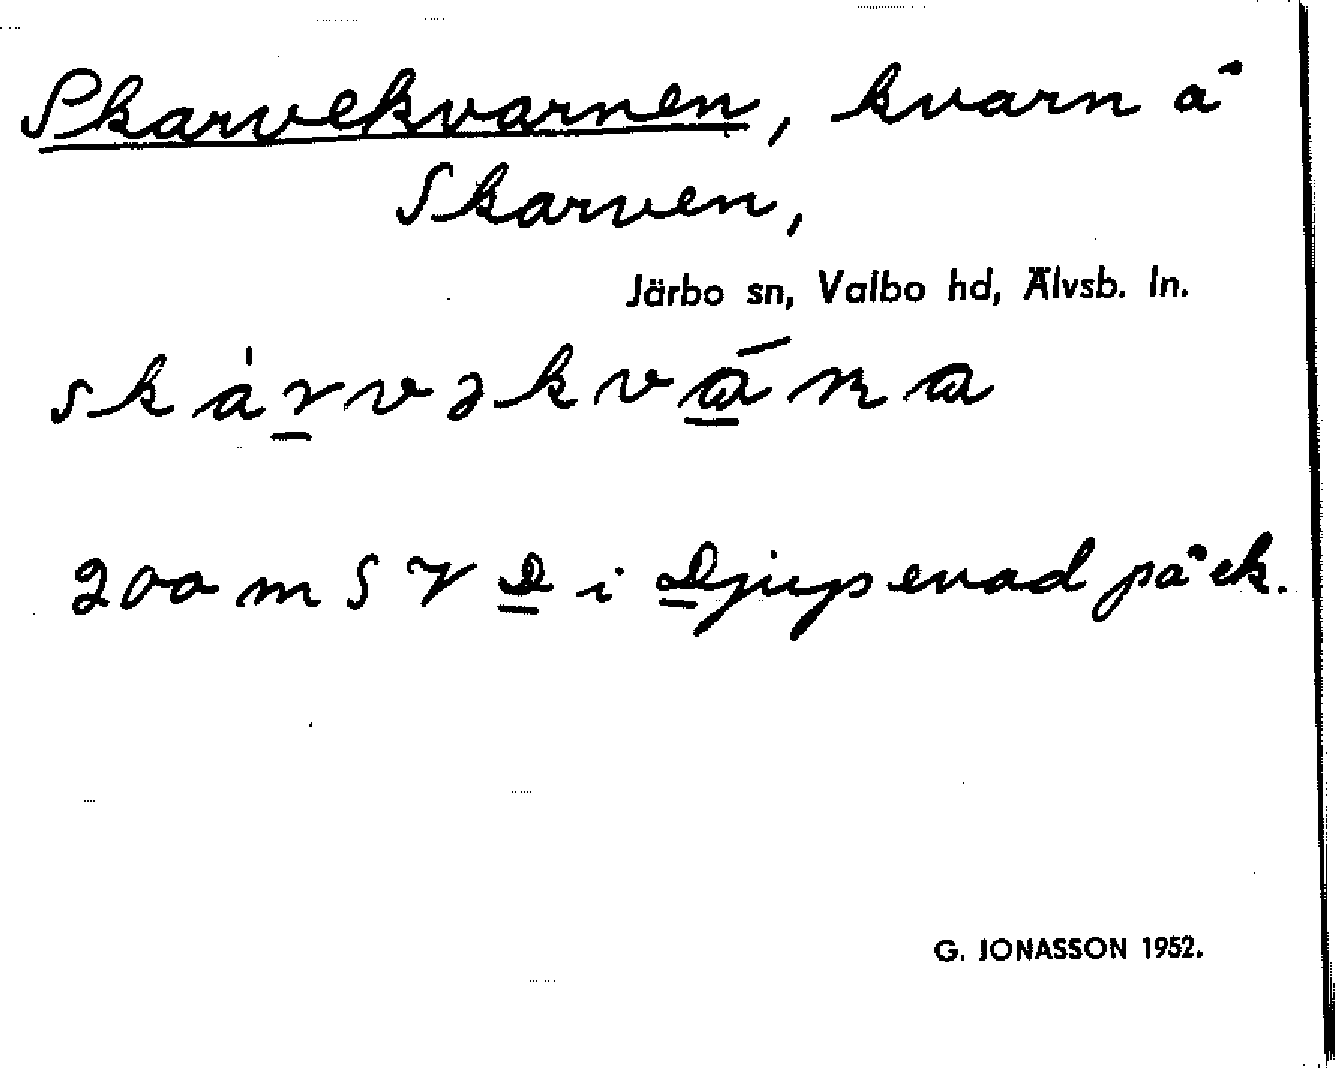 Skarvekvarnen, kvarn å
Skarven,
Järbo sn, Valbo hd, Älvsb. ln.
200 m S V D i Djupenad på ek.
G. JONASSON 1952.